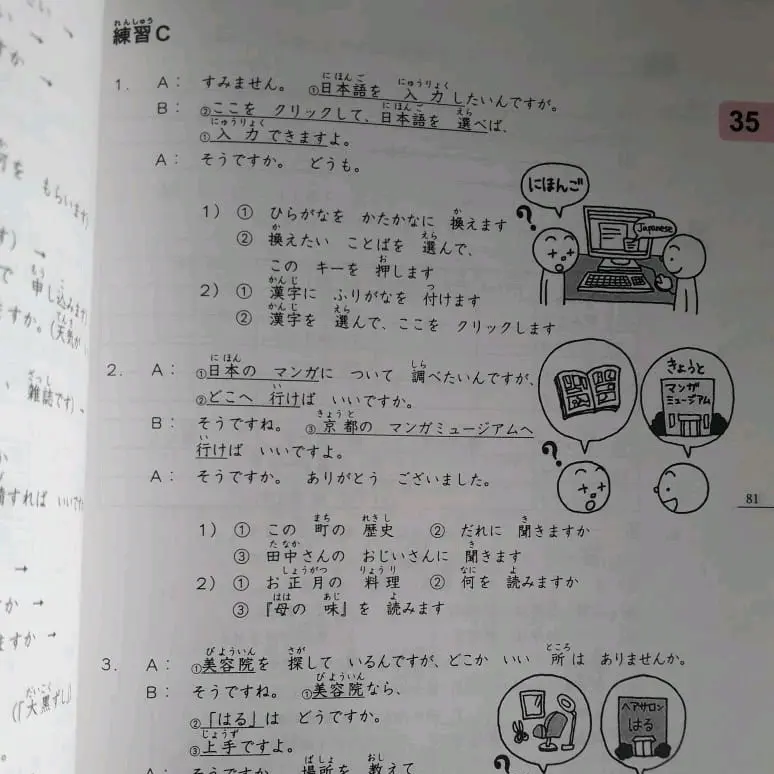 練習C
1. A： すみません。 ①日本語を 入力したいんですが。
B： ②ここを クリックして、日本語を 選べば、
①入力できますよ。
A： そうですか。 どうも。
1） ① ひらがなを かたかなに 換えます
② 換えたい ことばを 選んで、
この キーを 押します
2） ① 漢字に ふりがなを 付けます
② 漢字を 選んで、ここを クリックします
にほんご
Japanese
35
2. A： ①日本の マンガに ついて 調べたいんですが、
②どこへ 行けば いいですか。
B： そうですね。 ③京都の マンガミュージアムへ
行けば いいですよ。
A： そうですか。 ありがとう ございました。
1） ① この 町の 歴史 ② だれに 聞きますか
③ 田中さんの おじいさんに 聞きます
2） ① お正月の 料理 ② 何を 読みますか
③ 『母の 味』を 読みます
きょうと
マンガ
ミュージアム
81
3. A： ①美容院を 探して いるんですが、どこか いい 所は ありませんか。
B： そうですね。 ①美容院なら、
②「はる」は どうですか。
③上手ですよ。
A： そうですか。 場所を 教えて
ヘアサロン
はる
もらいます)
申し込みます)
ですか。(天気が
雑誌です)
すれば いいです
(「大黒ずし」